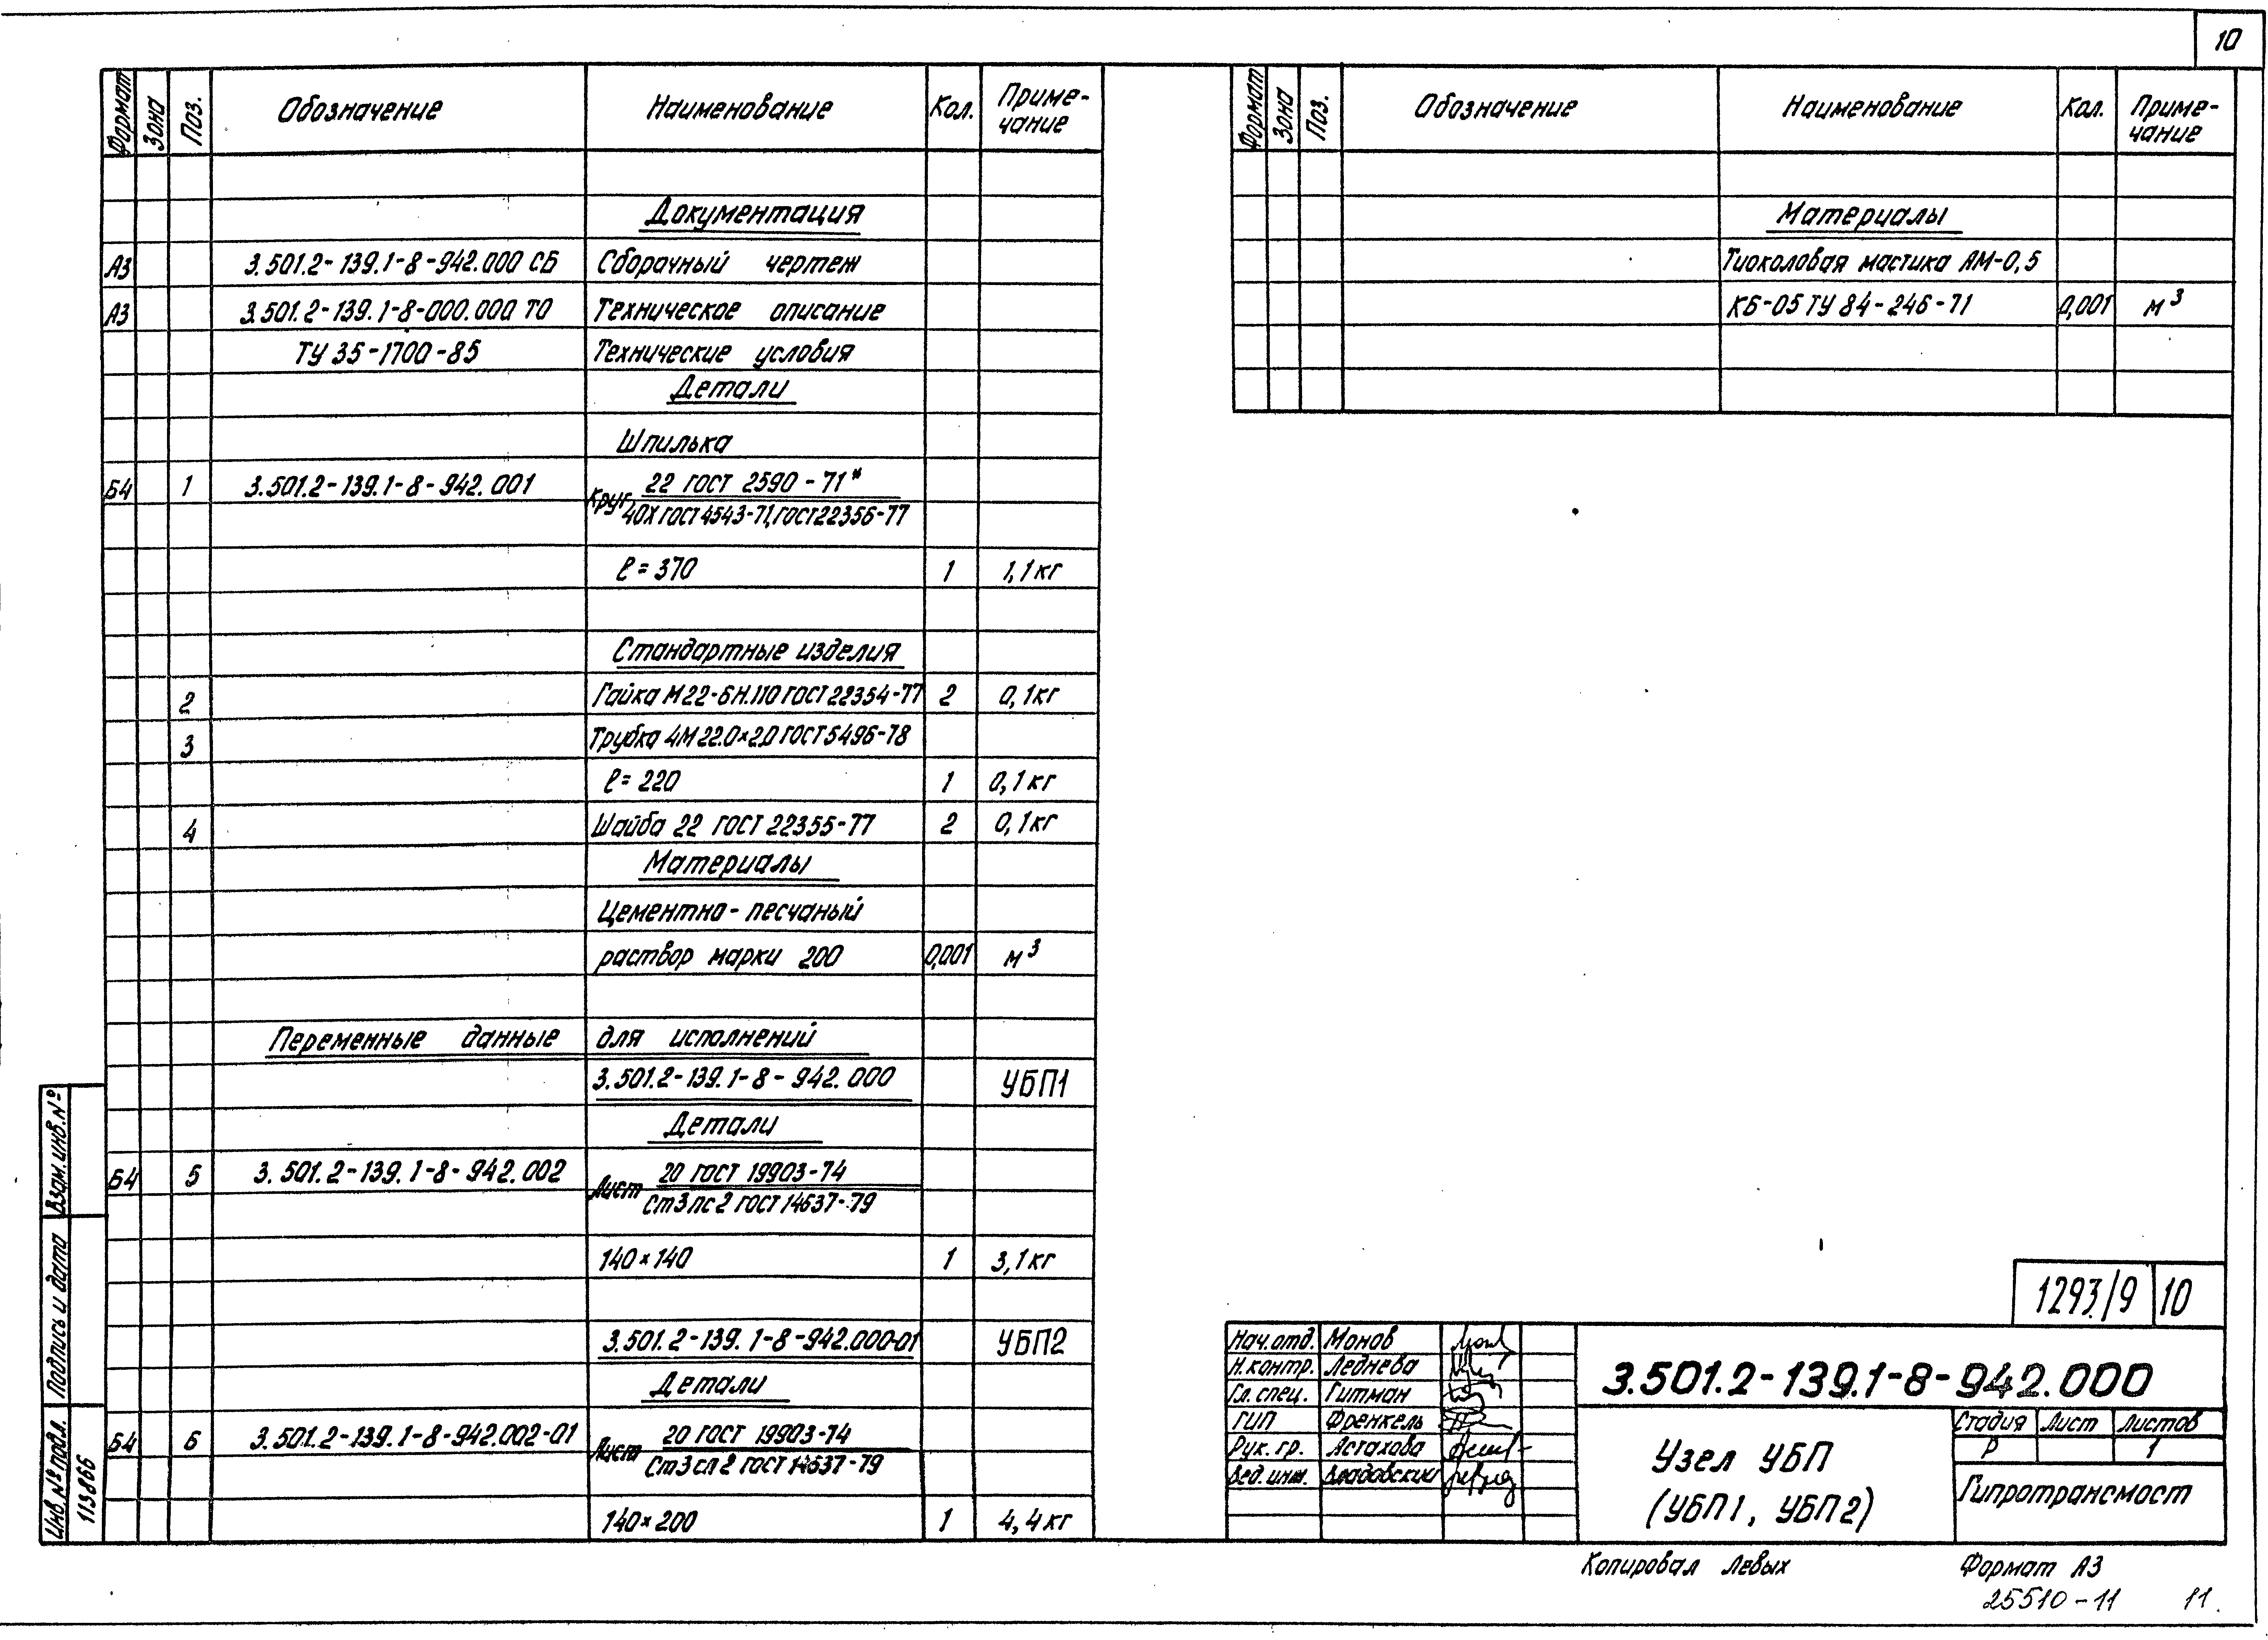 10
Формат Зона Поз. Обозначение Наименование Кол. Приме-чание
Документация
А3 3.501.2-139.1-8-942.000 СБ Сборочный чертеж
А3 3.501.2-139.1-8-000.000 ТО Техническое описание
ТУ 35-1700-85 Технические условия
Детали
Шпилька
Б4 1 3.501.2-139.1-8-942.001 Круг 22 ГОСТ 2590-71*
40Х ГОСТ 4543-71, ГОСТ 22356-77
ℓ=370 1 1,1кг
Стандартные изделия
2 Гайка М22-6Н.110 ГОСТ 22354-77 2 0,1кг
3 Трубка 4М 22.0×2.0 ГОСТ 5496-78
ℓ=220 1 0,1кг
4 Шайба 22 ГОСТ 22355-77 2 0,1кг
Материалы
Цементно-песчаный
раствор марки 200 0,001 м³
Переменные данные для исполнений
3.501.2-139.1-8-942.000 УБП1
Детали
Б4 5 3.501.2-139.1-8-942.002 Лист 20 ГОСТ 19903-74
Ст3пс2 ГОСТ 14637-79
140×140 1 3,1кг
3.501.2-139.1-8-942.000-01 УБП2
Детали
Б4 6 3.501.2-139.1-8-942.002-01 Лист 20 ГОСТ 19903-74
Ст3сп2 ГОСТ 14637-79
140×200 1 4,4кг
Взам.инв.№
Подпись и дата
Инв.№подл.
113866
Формат Зона Поз. Обозначение Наименование Кол. Приме-чание
Материалы
Тиоколовая мастика АМ-0,5
КБ-05 ТУ 84-246-71 0,001 м³
1293/9 10
Нач.отд. Монов
Н.контр. Леднева
Гл.спец. Гитман
ГИП Френкель
Рук.гр. Астахова
Вед.инж.
3.501.2-139.1-8-942.000
Узел УБП
(УБП1, УБП2)
Стадия Лист Листов
Р 1
Гипротрансмост
Копировал Левых Формат А3
25510-11 11